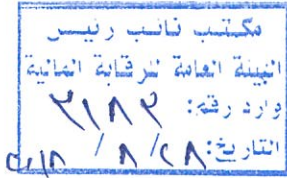 مكتب نائب رئيس
الهيئة العامة للرقابة المالية
وارد رقم: ٢١٨٢
التاريخ: ٢٨ / ٨ /